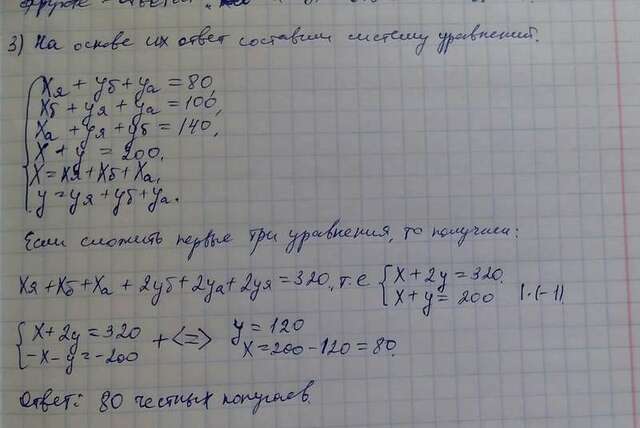 3) На основе их ответ составим систему уравнений.
Xя + yб + yа = 80,
Xб + yя + yа = 100,
Xа + yя + yб = 140,
X + y = 200,
X = Xя + Xб + Xа,
y = yя + yб + yа.
Если сложить первые три уравнения, то получим:
Xя + Xб + Xа + 2yб + 2yа + 2yя = 320, т.е { X + 2y = 320
X + y = 200 | ·(-1)
{ X + 2y = 320 + <=> y = 120
-X - y = -200 X = 200 - 120 = 80.
Ответ: 80 честных попугаев.